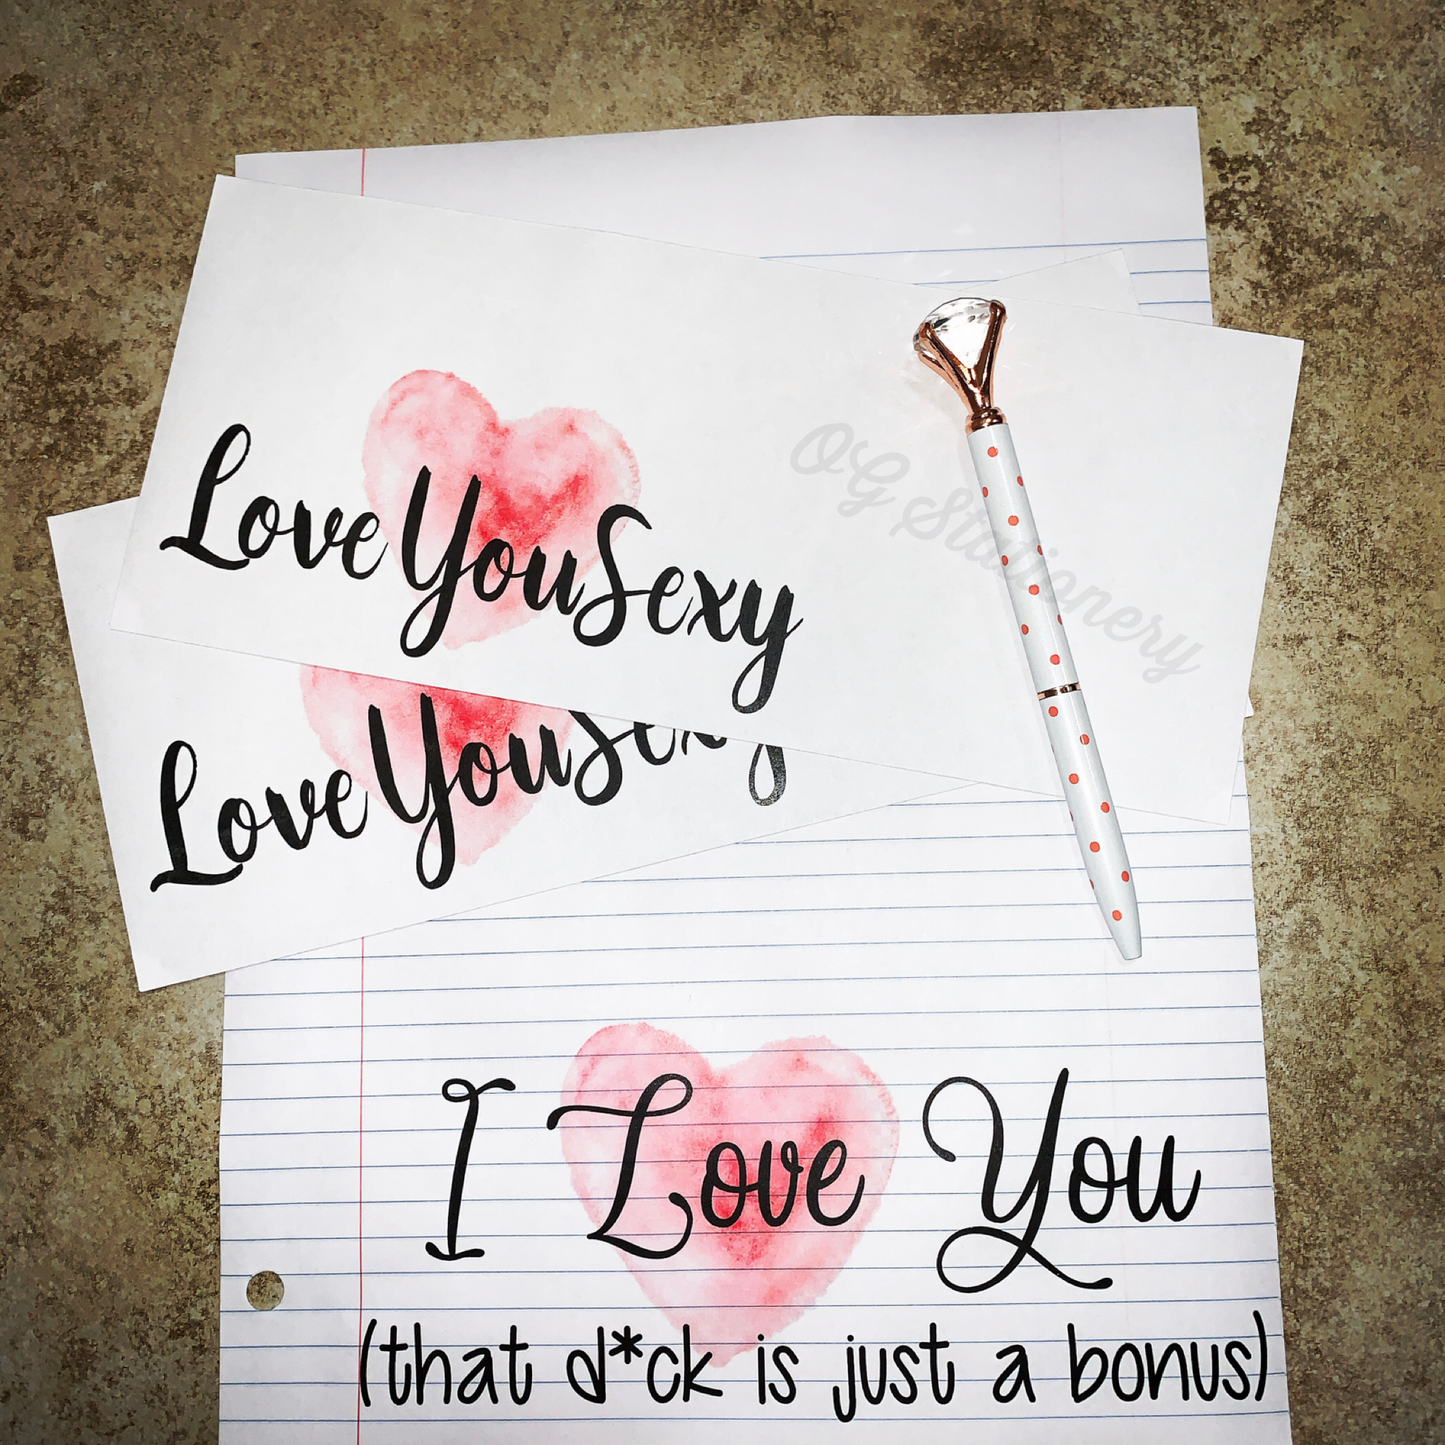 Love You Sexy
OG Stationery
Love You Sexy
I Love You
(that d*ck is just a bonus)